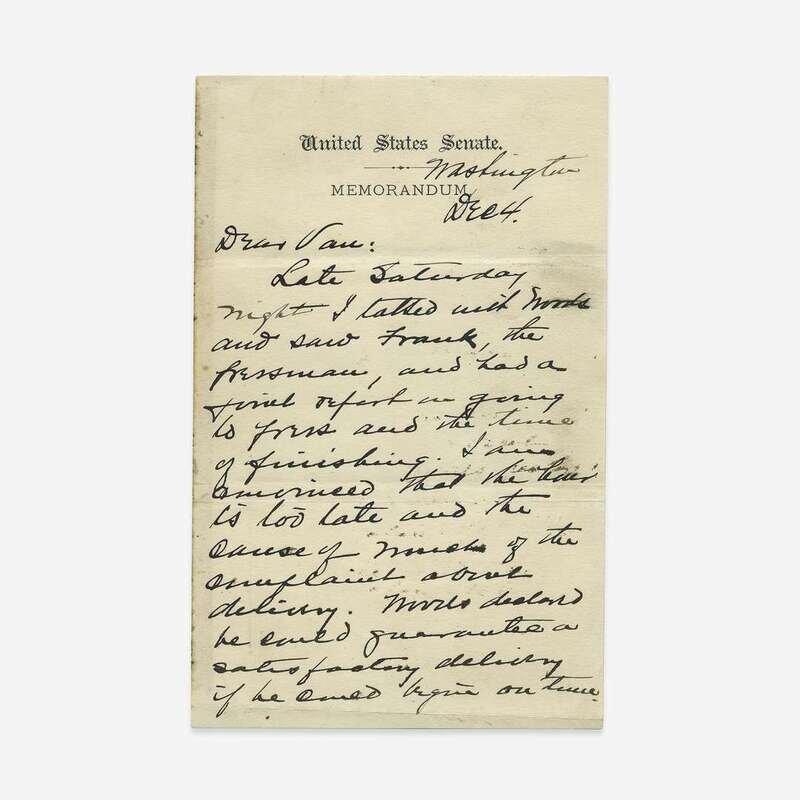 United States Senate.
Washington
MEMORANDUM
Dec 4.
Dear Van:
Late Saturday
night I talked with Woods
and saw Frank, the
pressman, and had a
joint report on going
to press and the time
of finishing. I am
convinced that the hour
is too late and the
cause of much of the
complaint about
delivery. Woods declared
he could guarantee a
satisfactory delivery
if he could begin on time.